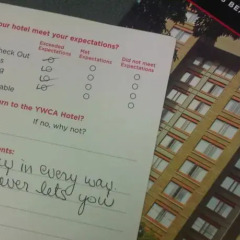 our hotel meet your expectations?
Exceeded Expectations Met Expectations Did not meet Expectations
eck Out
s
g
able
rn to the YWCA Hotel?
If no, why not?
nts:
in every way.
ever lets you